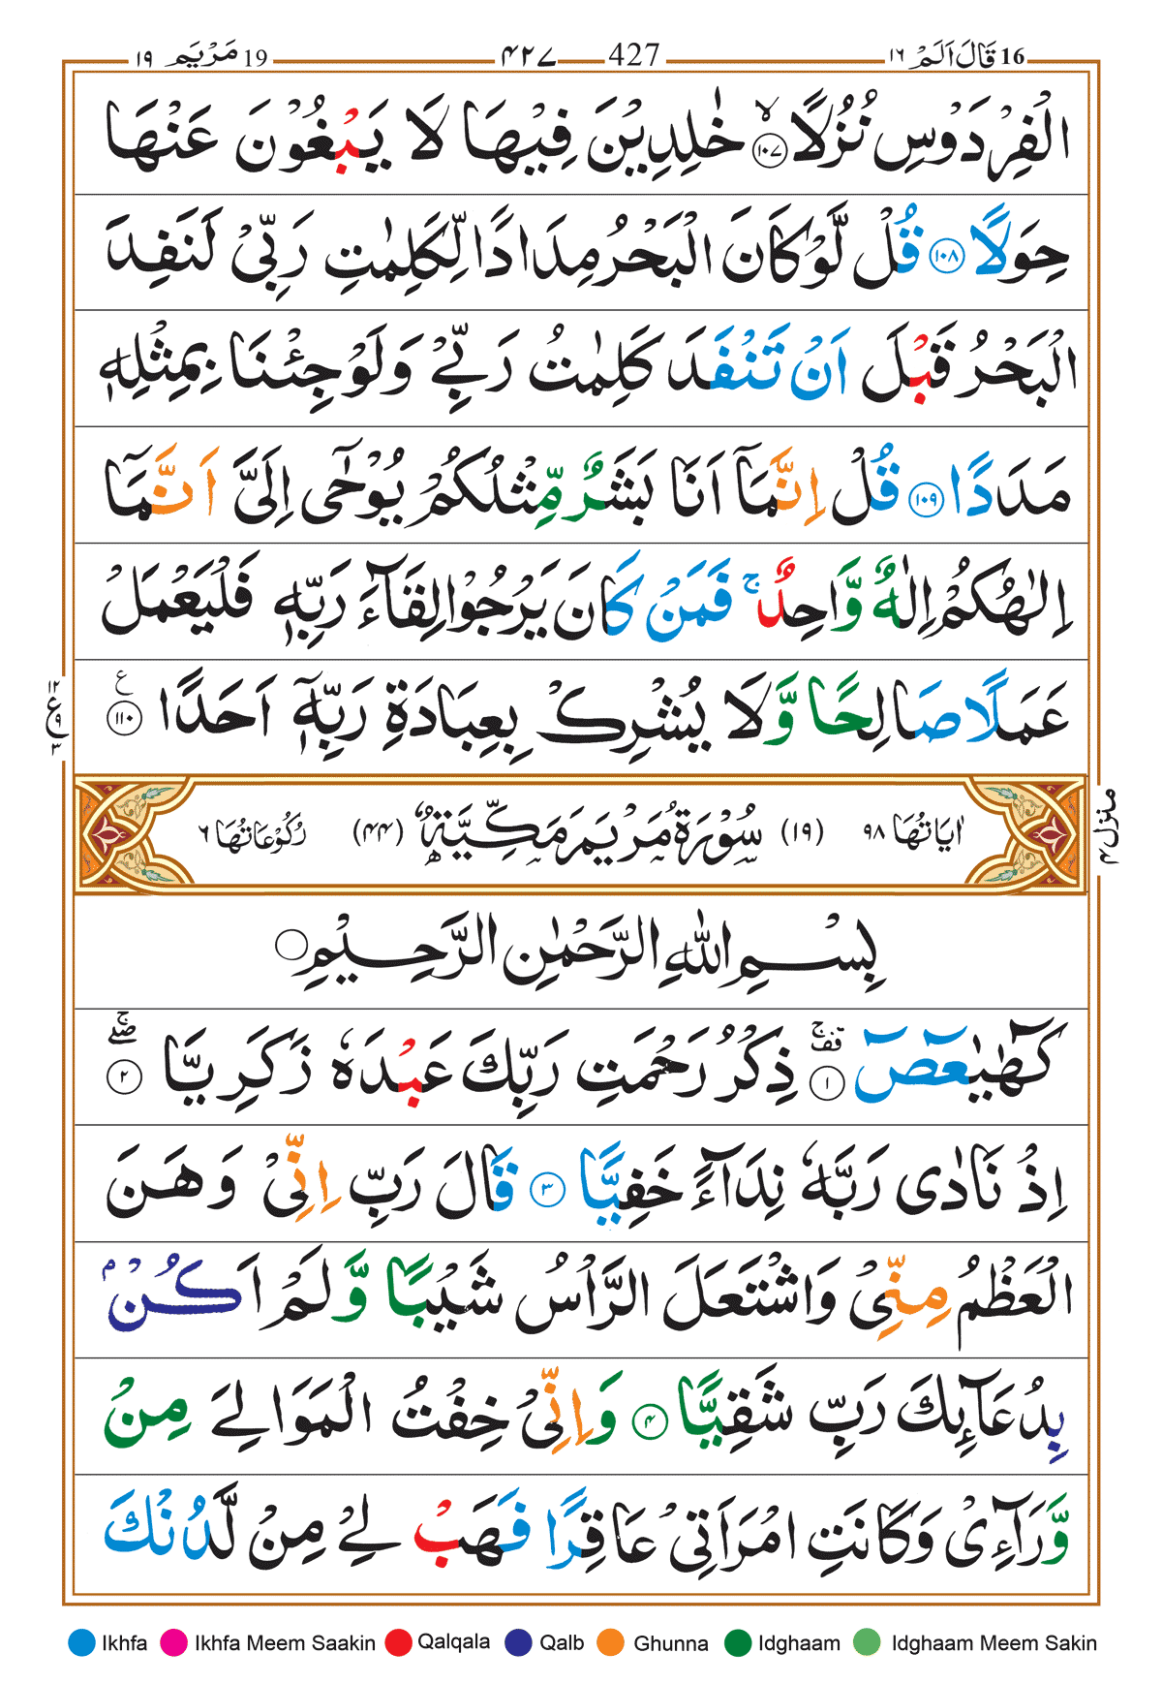 16 قَالَ اَلَمْ ١٦ 427 ٤٢٧ 19 مَرْيَم ١٩
الْفِرْدَوْسِ نُزُلًا ۙ‏﴿۱۰۷﴾ خٰلِدِيْنَ فِيْهَا لَا يَبْغُوْنَ عَنْهَا
حِوَلًا ﴿۱۰۸﴾ قُلْ لَّوْ كَانَ الْبَحْرُ مِدَادًا لِّكَلِمٰتِ رَبِّيْ لَنَفِدَ
الْبَحْرُ قَبْلَ اَنْ تَنْفَدَ كَلِمٰتُ رَبِّيْ وَلَوْ جِئْنَا بِمِثْلِهٖ
مَدَدًا ﴿۱۰۹﴾ قُلْ اِنَّمَاۤ اَنَا بَشَرٌ مِّثْلُكُمْ يُوْحٰۤى اِلَيَّ اَنَّمَاۤ
اِلٰهُكُمْ اِلٰهٌ وَّاحِدٌ ۚ فَمَنْ كَانَ يَرْجُوْا لِقَآءَ رَبِّهٖ فَلْيَعْمَلْ
عَمَلًا صَالِحًا وَّلَا يُشْرِكْ بِعِبَادَةِ رَبِّهٖۤ اَحَدًا ﴿۱۱۰﴾ ع
١٢ ع ٩ ٣
اٰيَاتُهَا ٩٨ (١٩) سُوْرَةُ مَرْيَمَ مَكِّيَّةٌ (٤٤) رُكُوْعَاتُهَا ٦
منزل ٤
بِسْمِ اللهِ الرَّحْمٰنِ الرَّحِيْمِ
كٓهٰيٰعٓصٓ ﴿۱﴾ قف ج ذِكْرُ رَحْمَتِ رَبِّكَ عَبْدَهٗ زَكَرِيَّا ﴿۲﴾ صلے ج
اِذْ نَادٰى رَبَّهٗ نِدَآءً خَفِيًّا ﴿۳﴾ قَالَ رَبِّ اِنِّيْ وَهَنَ
الْعَظْمُ مِنِّيْ وَاشْتَعَلَ الرَّاْسُ شَيْبًا وَّلَمْ اَكُنْۢ
بِدُعَآئِكَ رَبِّ شَقِيًّا ﴿۴﴾ وَاِنِّيْ خِفْتُ الْمَوَالِيَ مِنْ
وَّرَآءِيْ وَكَانَتِ امْرَاَتِيْ عَاقِرًا فَهَبْ لِيْ مِنْ لَّدُنْكَ
Ikhfa Ikhfa Meem Saakin Qalqala Qalb Ghunna Idghaam Idghaam Meem Sakin